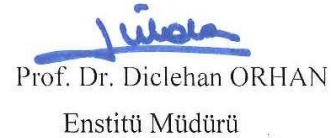 Prof. Dr. Diclehan ORHAN
Enstitü Müdürü